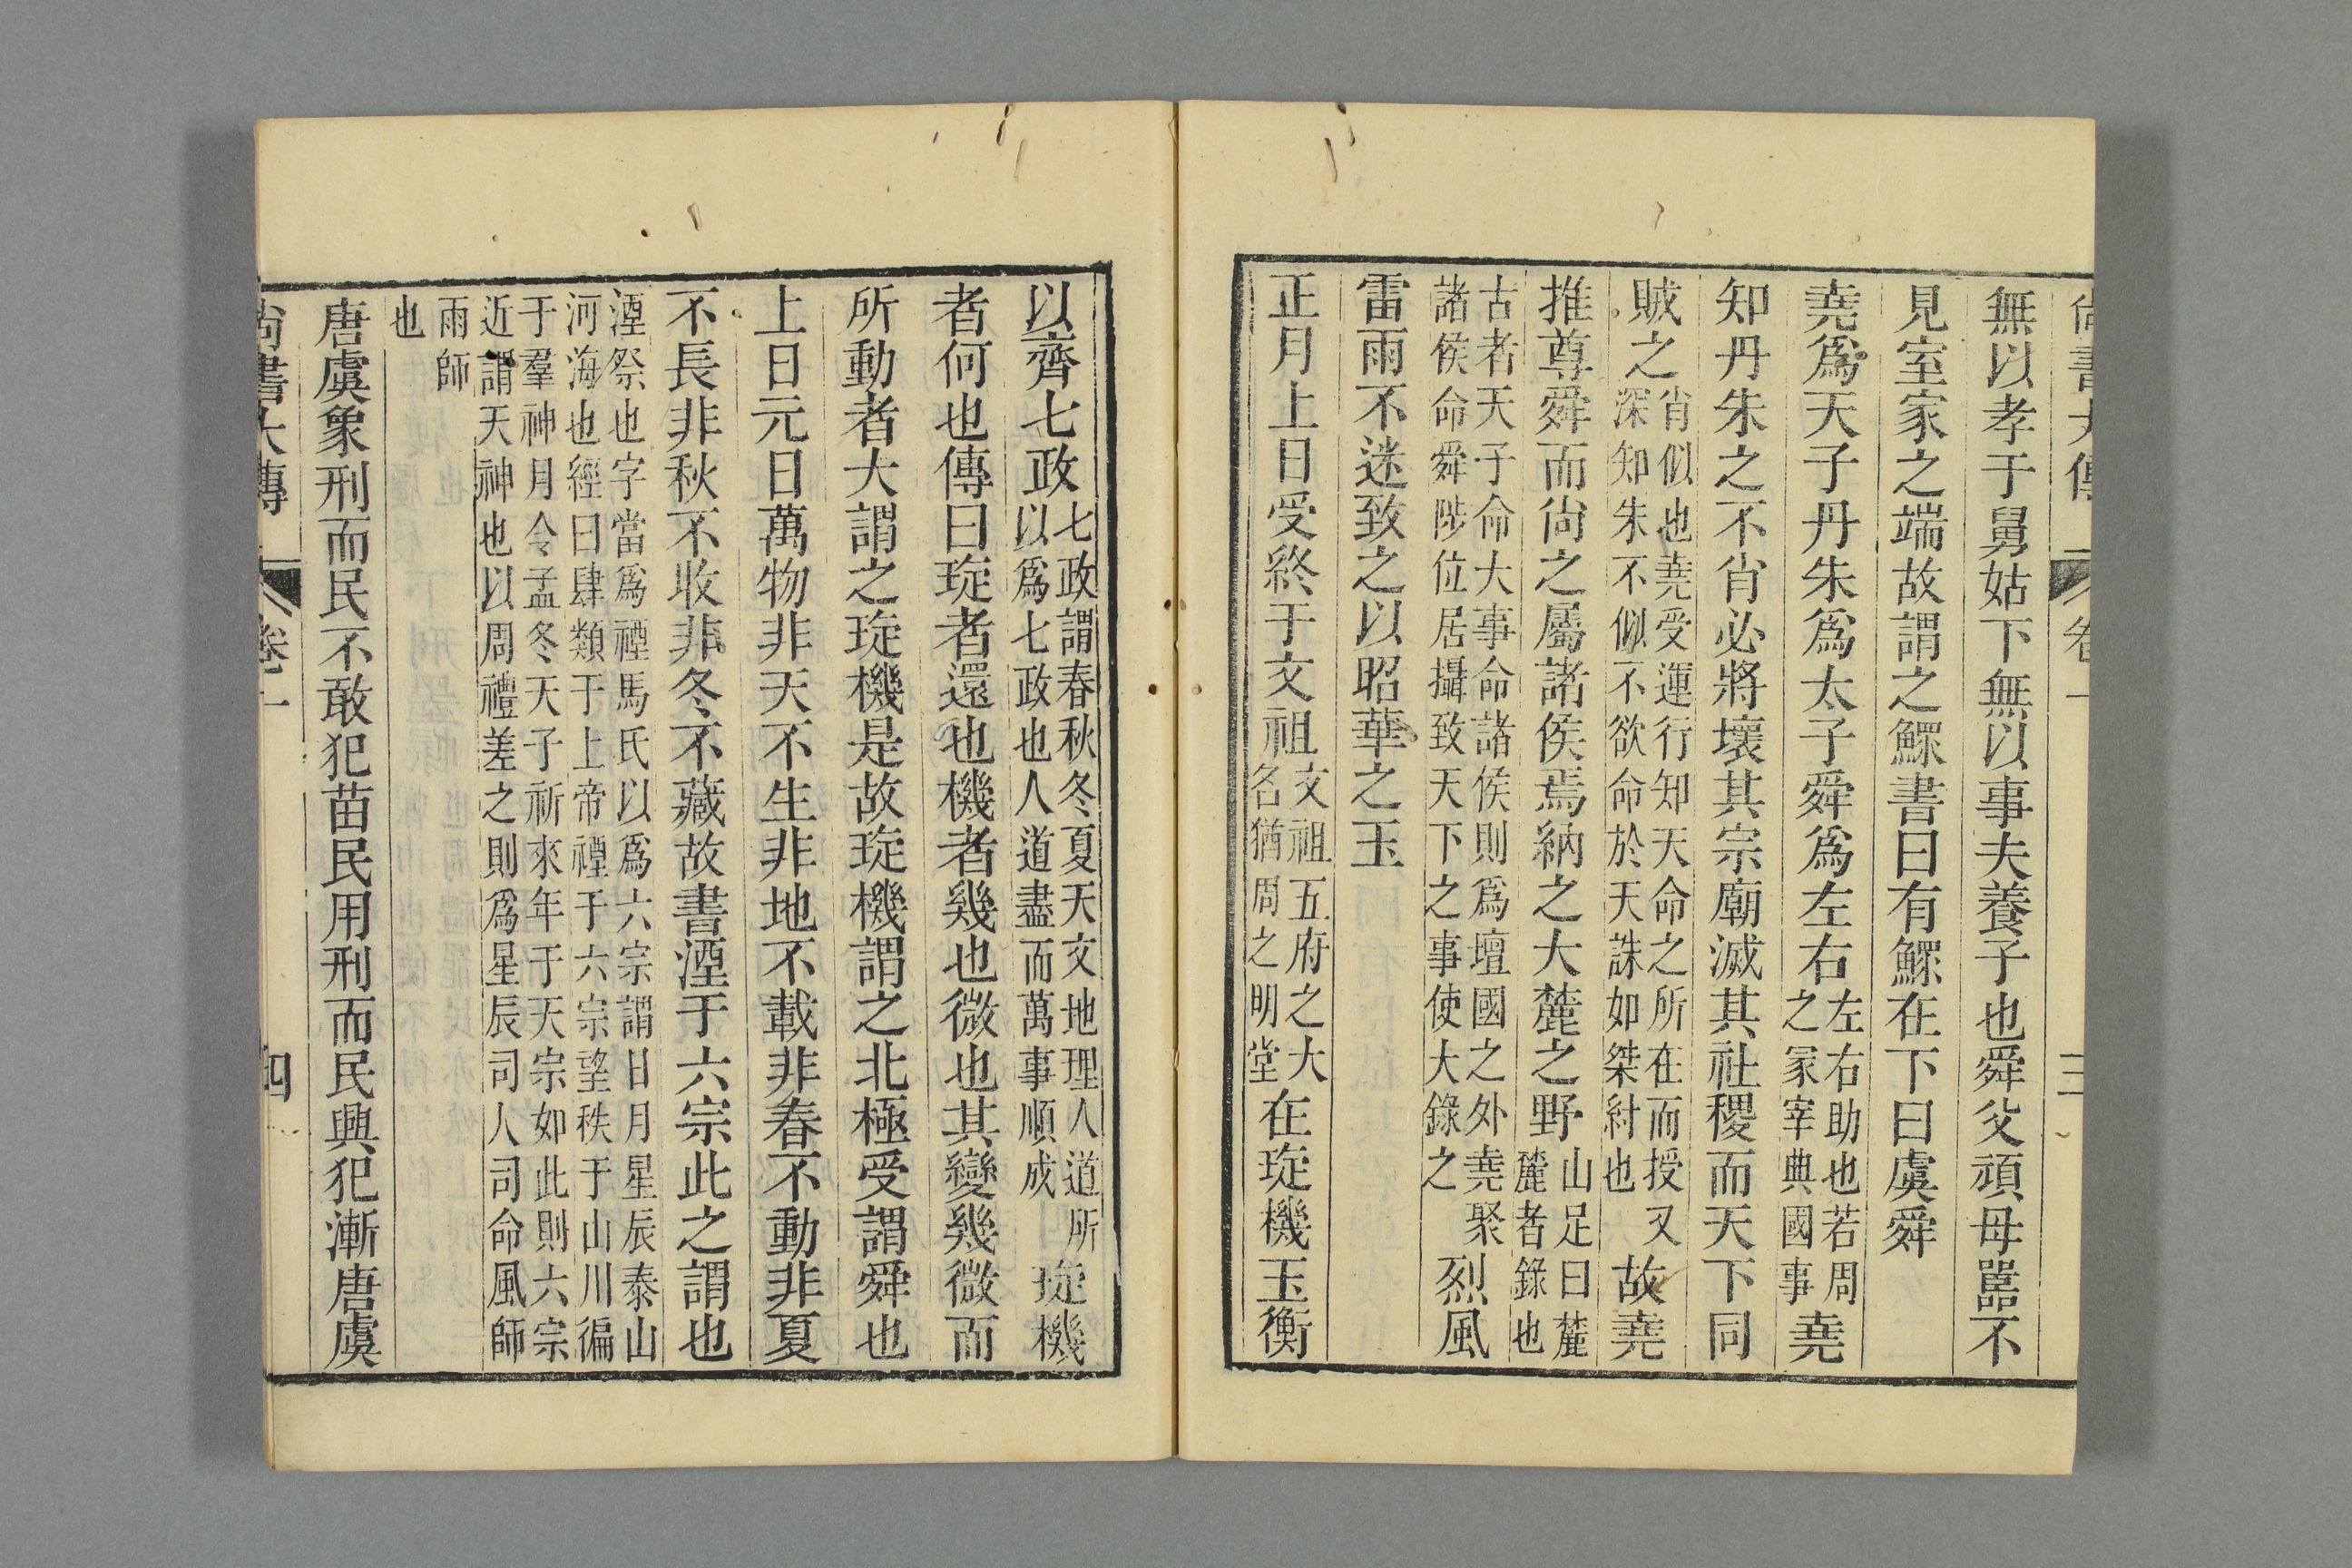 尚書大傳 卷一 三
無以孝于舅姑下無以事夫養子也舜父頑母嚚不
見室家之端故謂之鰥書曰有鰥在下曰虞舜
堯爲天子丹朱爲太子舜爲左右左右助也若周之冢宰典國事堯
知丹朱之不肖必將壞其宗廟滅其社稷而天下同
賊之肖似也堯受運行知天命之所在而授又深知朱不似不欲命於天誅如桀紂也故堯
推尊舜而尚之屬諸侯焉納之大麓之野山足曰麓麓者錄也
古者天子命大事命諸侯則爲壇國之外堯聚諸侯命舜陟位居攝致天下之事使大錄之烈風
雷雨不迷致之以昭華之玉
正月上日受終于文祖文祖五府之大名猶周之明堂在琁機玉衡
以齊七政七政謂春秋冬夏天文地理人道所以爲七政也人道盡而萬事順成琁機
者何也傳曰琁者還也機者幾也微也其變幾微而
所動者大謂之琁機是故琁機謂之北極受謂舜也
上日元日萬物非天不生非地不載非春不動非夏
不長非秋不收非冬不藏故書湮于六宗此之謂也
湮祭也字當爲禋馬氏以爲六宗謂日月星辰泰山
河海也經曰肆類于上帝禋于六宗望秩于山川徧
于羣神月令孟冬天子祈來年于天宗如此則六宗
近謂天神也以周禮差之則爲星辰司人司命風師
雨師
也
唐虞象刑而民不敢犯苗民用刑而民興犯漸唐虞
尚書大傳 卷一 四